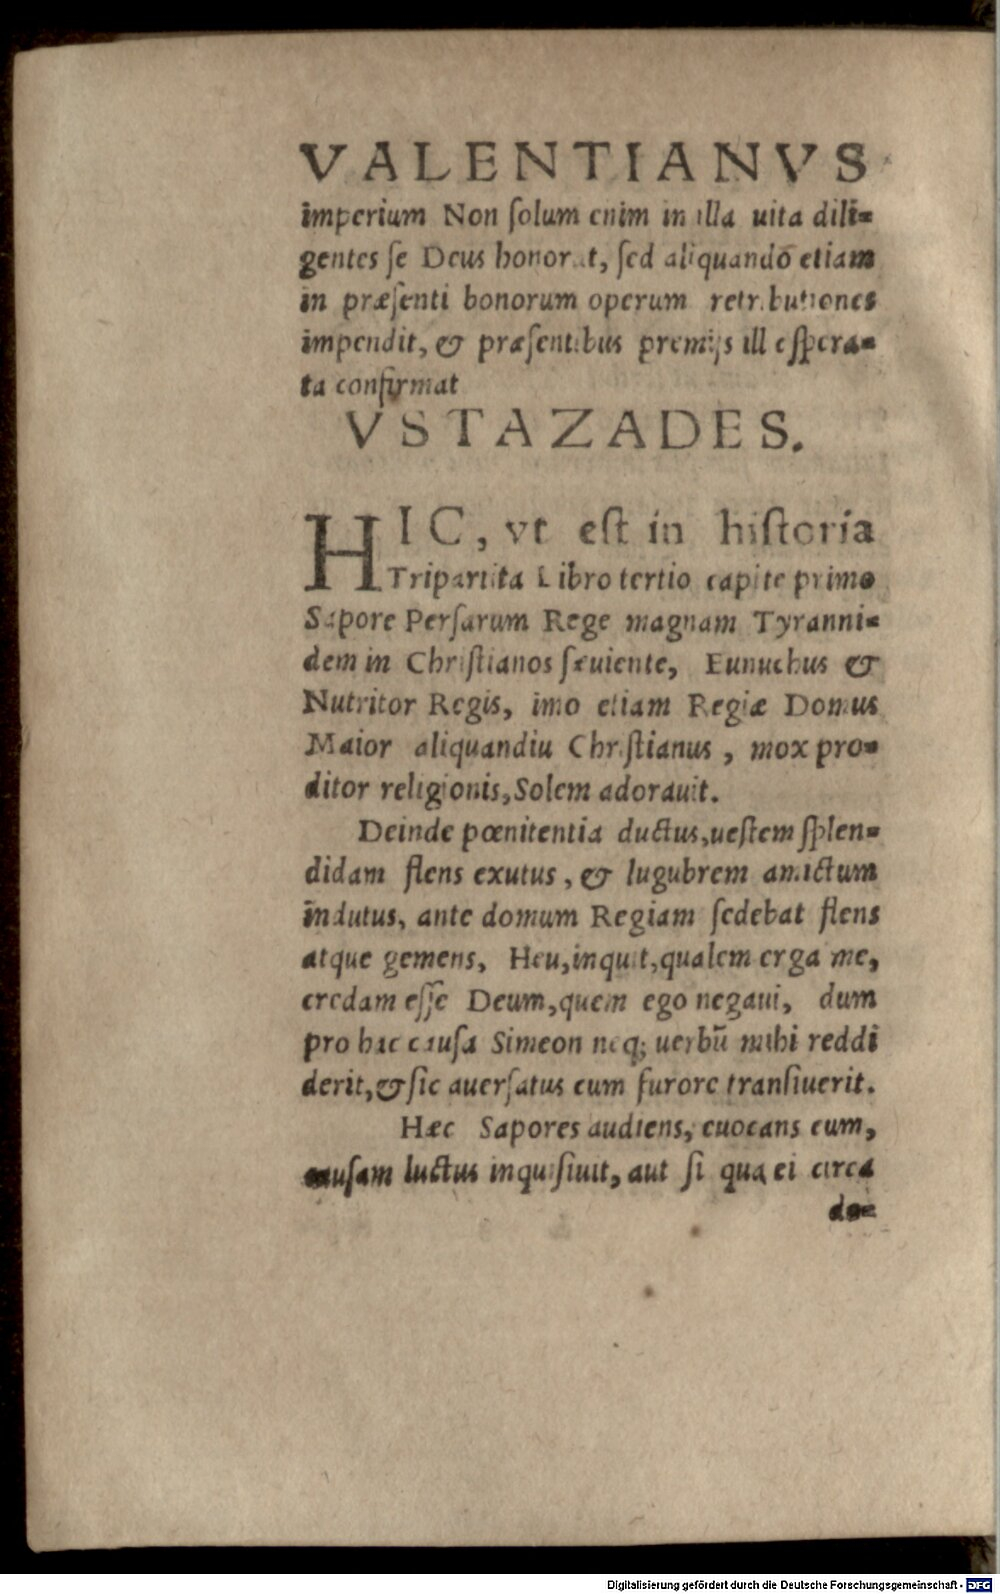 VALENTIANVS
imperium Non ſolum enim in illa uita dili=
gentes ſe Deus honorat, ſed aliquandō etiam
in præſenti bonorum operum retributiones
impendit, & præſentibus premijs ill eſpera=
ta confirmat
VSTAZADES.
HIC, vt eſt in hiſtoria
Tripartita Libro tertio capite primo
Sapore Perſarum Rege magnam Tyranni=
dem in Chriſtianos ſæuiente, Eunuchus &
Nutritor Regis, imo etiam Regiæ Domus
Maior aliquandiu Chriſtianus, mox pro=
ditor religionis, Solem adorauit.
Deinde pœnitentia ductus, ueſtem ſplen=
didam flens exutus, & lugubrem amictum
indutus, ante domum Regiam ſedebat flens
atque gemens, Heu, inquit, qualem erga me,
credam eſſe Deum, quem ego negaui, dum
pro hac cauſa Simeon neq; uerbū mihi reddi
derit, & ſic auerſatus cum furore tranſiuerit.
Hæc Sapores audiens, euocans eum,
cauſam luctus inquiſiuit, aut ſi qua ei circa
do=
Digitalisierung gefördert durch die Deutsche Forschungsgemeinschaft - DFG